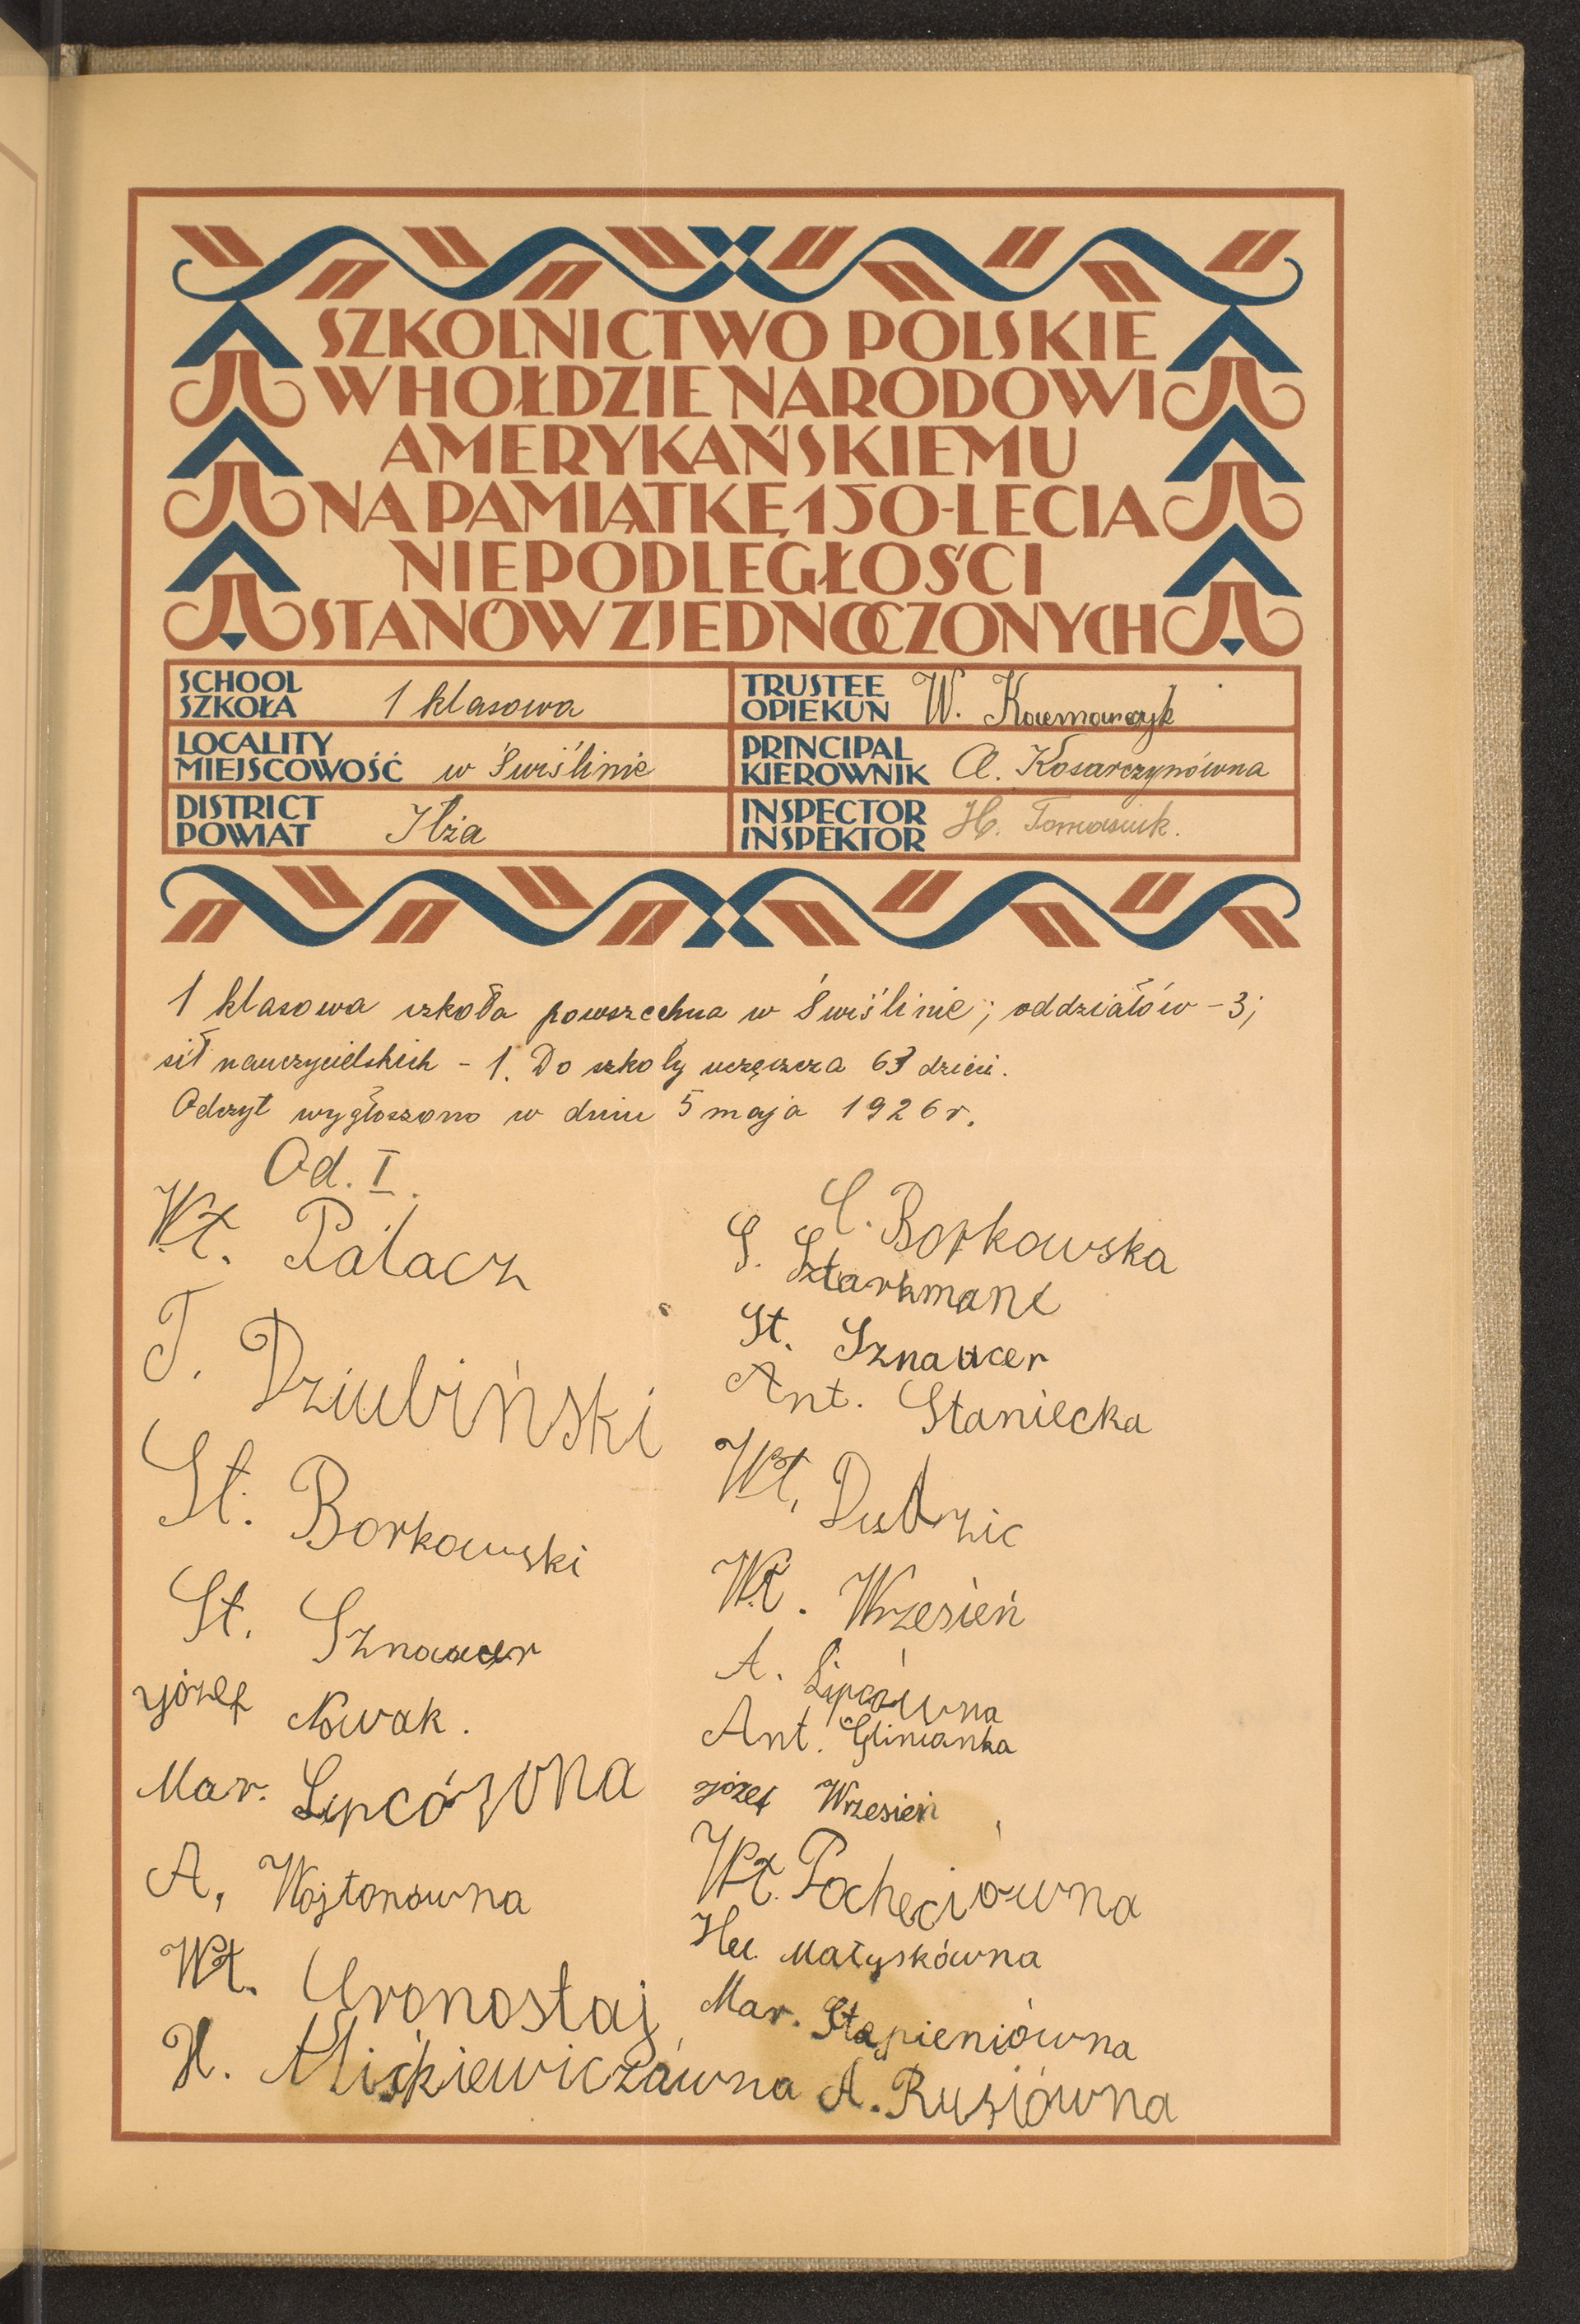 SZKOLNICTWO POLSKIE
W HOŁDZIE NARODOWI
AMERYKAŃSKIEMU
NA PAMIĄTKĘ 150-LECIA
NIEPODLEGŁOŚCI
STANÓW ZJEDNOCZONYCH
SCHOOL
SZKOŁA 1 klasowa
TRUSTEE
OPIEKUN W.
LOCALITY
MIEJSCOWOŚĆ w Świślinie
PRINCIPAL
KIEROWNIK A. Kosarczynówna
DISTRICT
POWIAT Iłża
INSPECTOR
INSPEKTOR H. Tomasiuk.
1 klasowa szkoła powszechna w Świślinie; oddziałów – 3;
sił nauczycielskich – 1. Do szkoły uczęszcza 63 dzieci.
Odczyt wygłoszono w dniu 5 maja 1926 r.
Od. I.
Wł. Pałacz
T. Dziubiński
St. Borkowski
St. Sznaucer
Józef Nowak.
Mar. Lipcówna
A. Wojtonówna
Wł. Gronostaj
H. Mićkiewiczówna
C. Borkowska
S. Sztarkmane
St. Sznaucer
Ant. Staniecka
Wł. Dudzic
Wł. Wrzesień
A. Lipcówna
Ant. Glinianka
Józef Wrzesień
Wł. Pocheciówna
Hel. Małyskówna
Mar. Stąpieniówna
A. Rusiówna